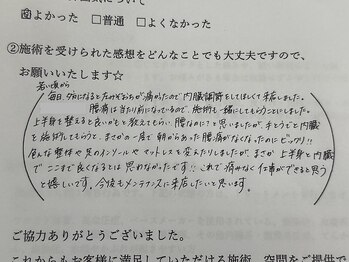 ☑よかった □普通 □よくなかった
②施術を受けられた感想をどんなことでも大丈夫ですので、
お願いいたします☆
若い頃から
毎日、夕方になると左のわきおろが痛かったので内臓調整をしてほしくて来店しました。
腰痛は当たり前になっているので、施術も一緒にしてもらうことにしました。
上半身を整えると良いかもと教えてもらい、腰なのに?と思いましたが、手とうでと内臓
と施術してもらうと、まさかの一度で朝からあった腰痛がなくなったのにビックリ!!
色んな整体や足のインソールやマットレスを変えたりしましたが、まさか上半身と内臓
でここまで良くなるとは思わなかったです!!これで痛みなく仕事ができると思う
と嬉しいです。今後もメンテナンスに来店したいと思います。
ご協力ありがとうございました。
これからもお客様に満足していただける施術、空間をご提供で